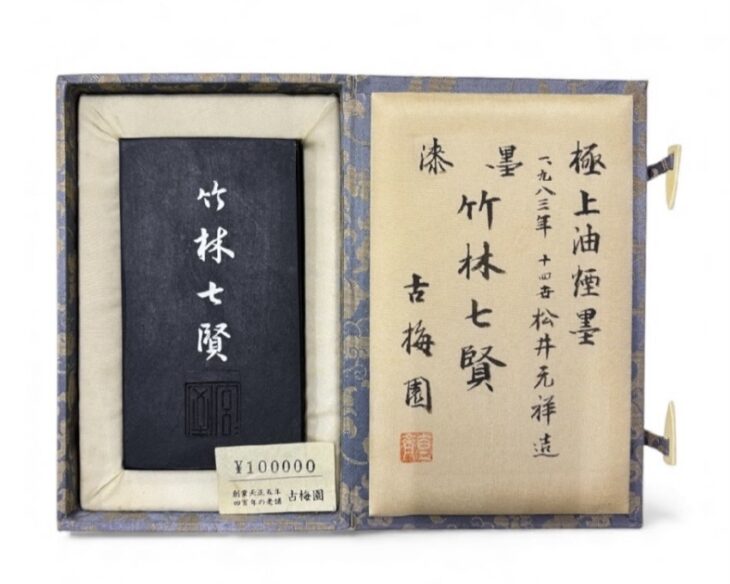 竹林七賢
¥100000
創業天正五年
四百年の老舗 古梅園
極上油煙墨
一九八三年 十四世 松井元祥造
漆墨
竹林七賢
古梅園